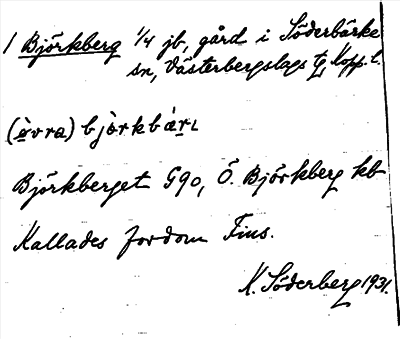 1 Björkberg 1/4 jb, gård i Söderbärke
sn, Västerbergslags tg, Kopp. l.
(ò̤vra) bjò̤rkbä́r̤ɩ
Björkberget G90, Ö. Björkberg kb
Kallades fordom Fius.
K. Söderberg 1931.